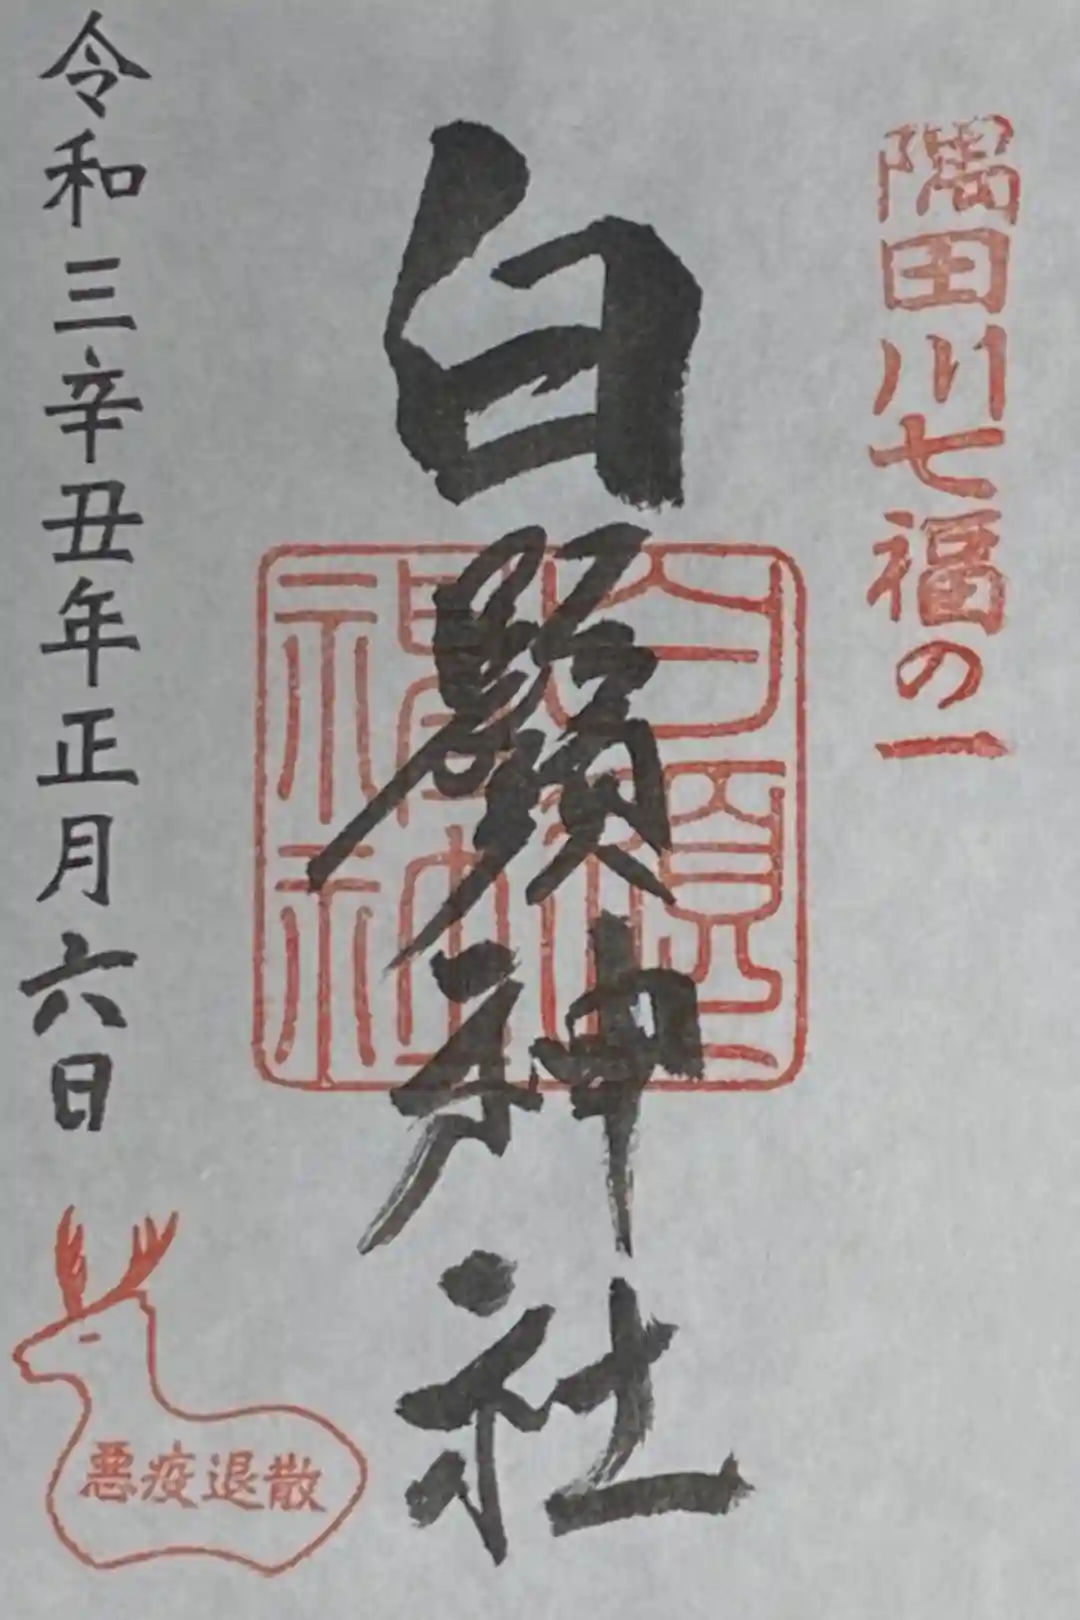 隅田川七福の一
白鬚神社
令和三辛丑年正月六日
悪疫退散